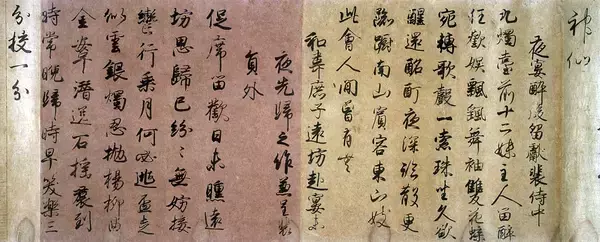 神仙
夜宴醉後留獻裴侍中
九燭臺前十二姝主人留醉
任歡娛飄飄舞袖雙飛蝶
宛轉歌聲一索珠坐久欲
醒還酩酊夜深臨散更
踟躕南山賓客東山妓
此會人間曾有無
和韋庶子遠坊赴宴未
夜先歸之作兼呈裴
員外
促席留歡日未曛遠
坊思歸已紛〻無妨按
轡行乘月何必逃盃走
似雲銀燭忍拋楊柳曲
金鞍潛送石榴裙到
時常晚歸時早笑樂三
分校一分